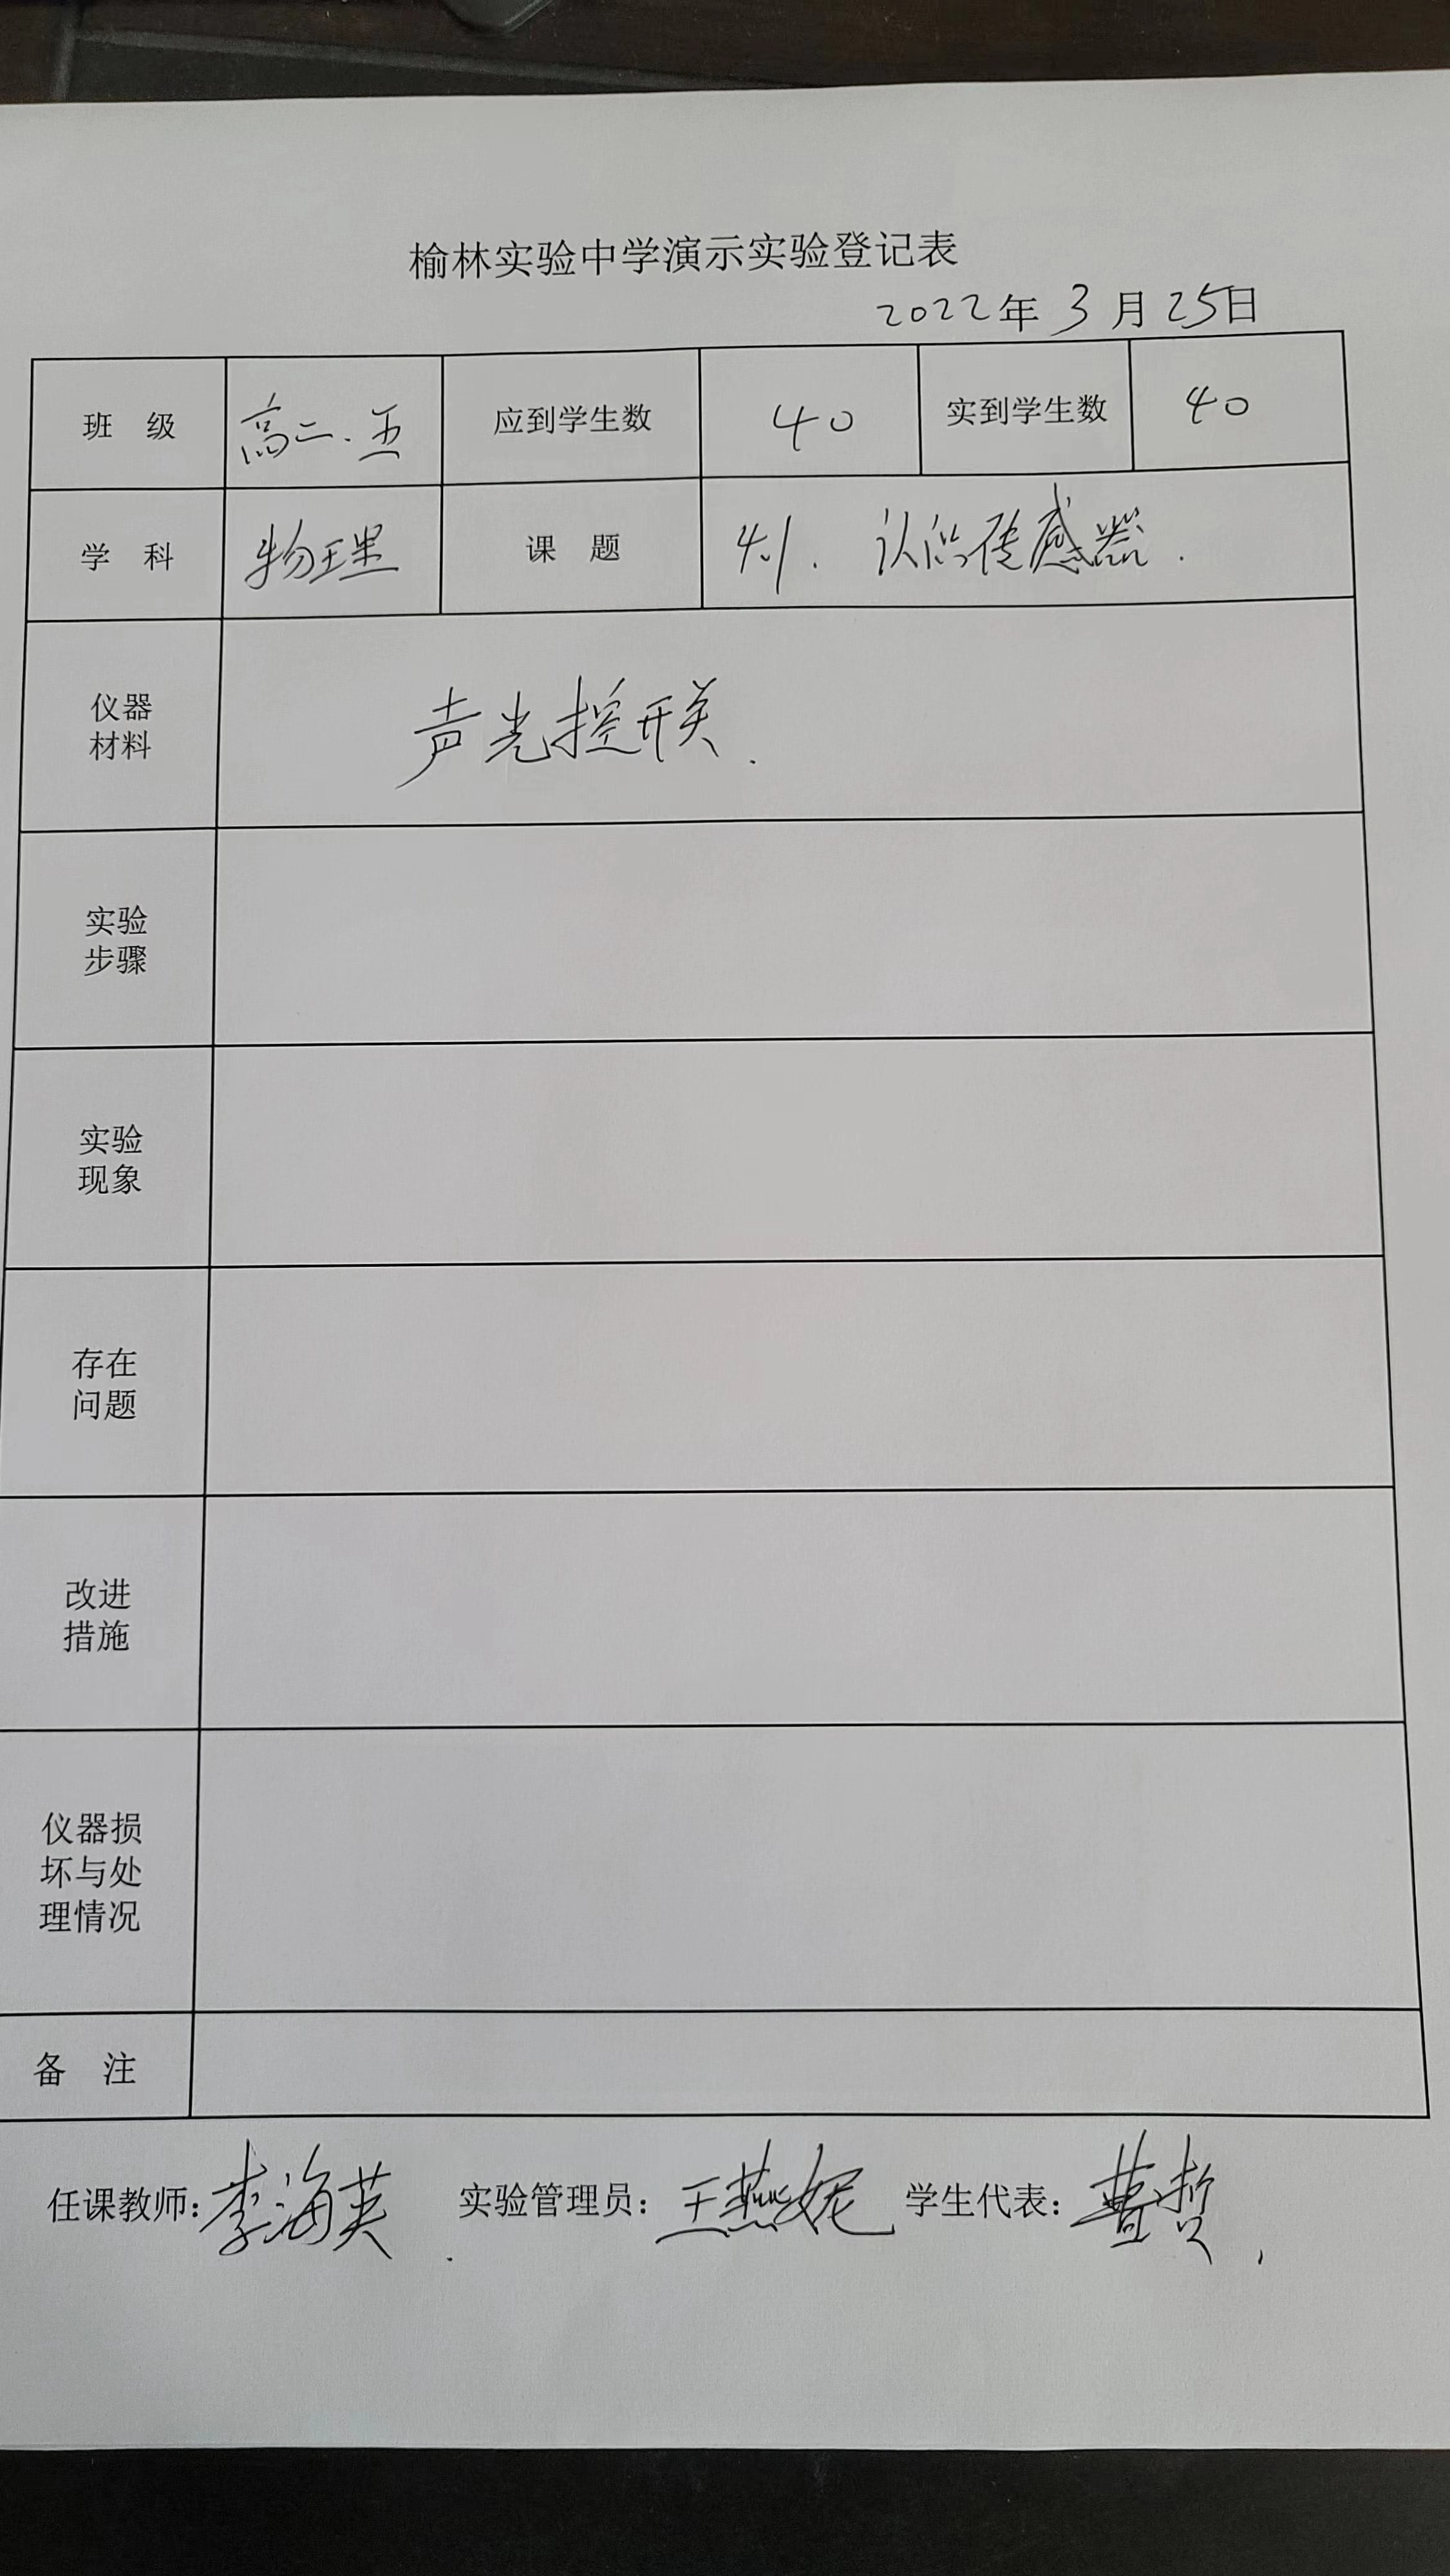 榆林实验中学演示实验登记表
2022年 3 月 25日
班 级 高二.五 应到学生数 40 实到学生数 40
学 科 物理 课 题 4.1. 认识传感器.
仪器
材料
声光控开关.
实验
步骤
实验
现象
存在
问题
改进
措施
仪器损
坏与处
理情况
备 注
任课教师:李海英. 实验管理员:王燕妮 学生代表:曹哲.